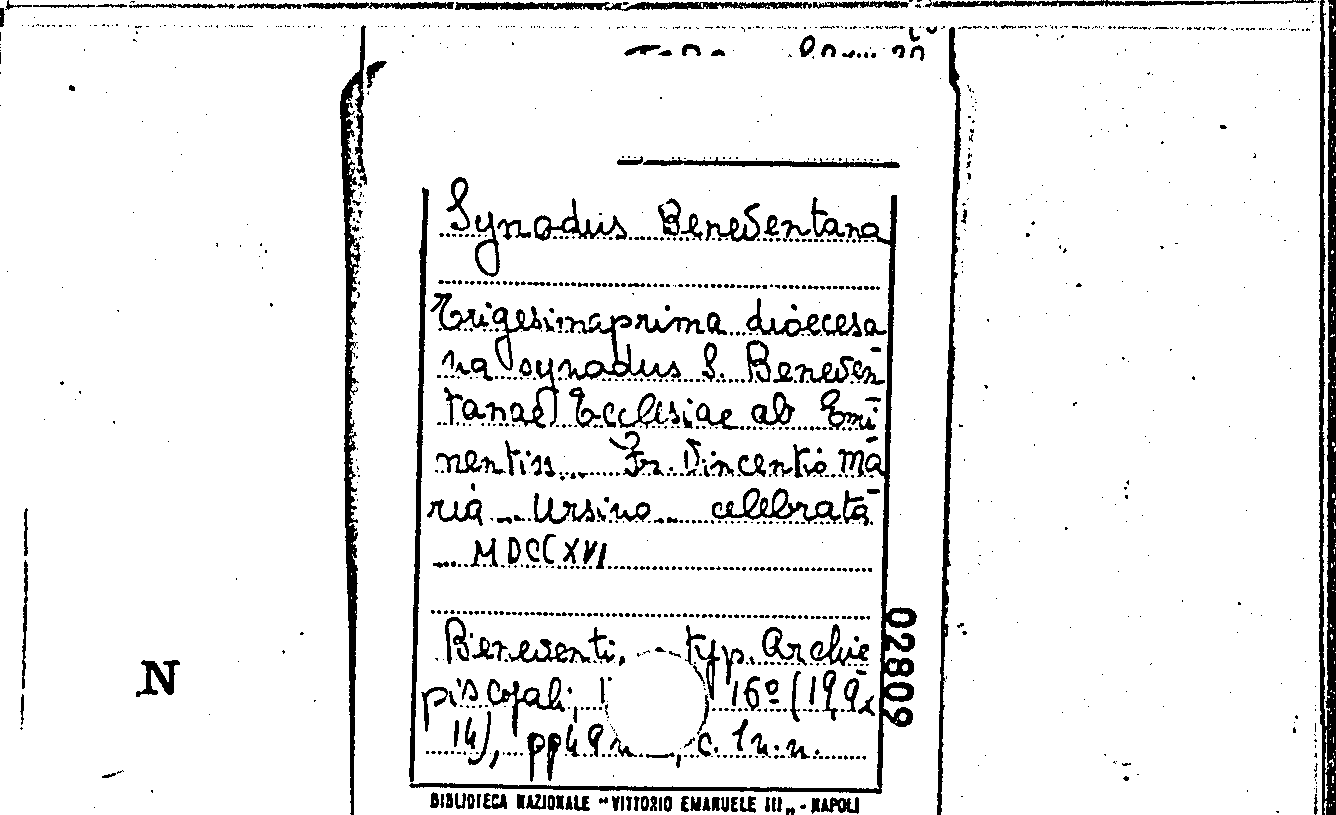 Synodus Beneventana
Trigesimaprima dioecesa
na synodus S. Beneven
tanae Ecclesiae ab Emi
nentiss... Fr. Vincentio Ma
ria ... Ursino ... celebrata
... MDCCXVI
Beneventi, typ. Archie
piscopali, 16º (19,9x
14), pp. 49 n c. 1 n.n.
02809
N
BIBLIOTECA NAZIONALE "VITTORIO EMANUELE III„ - NAPOLI